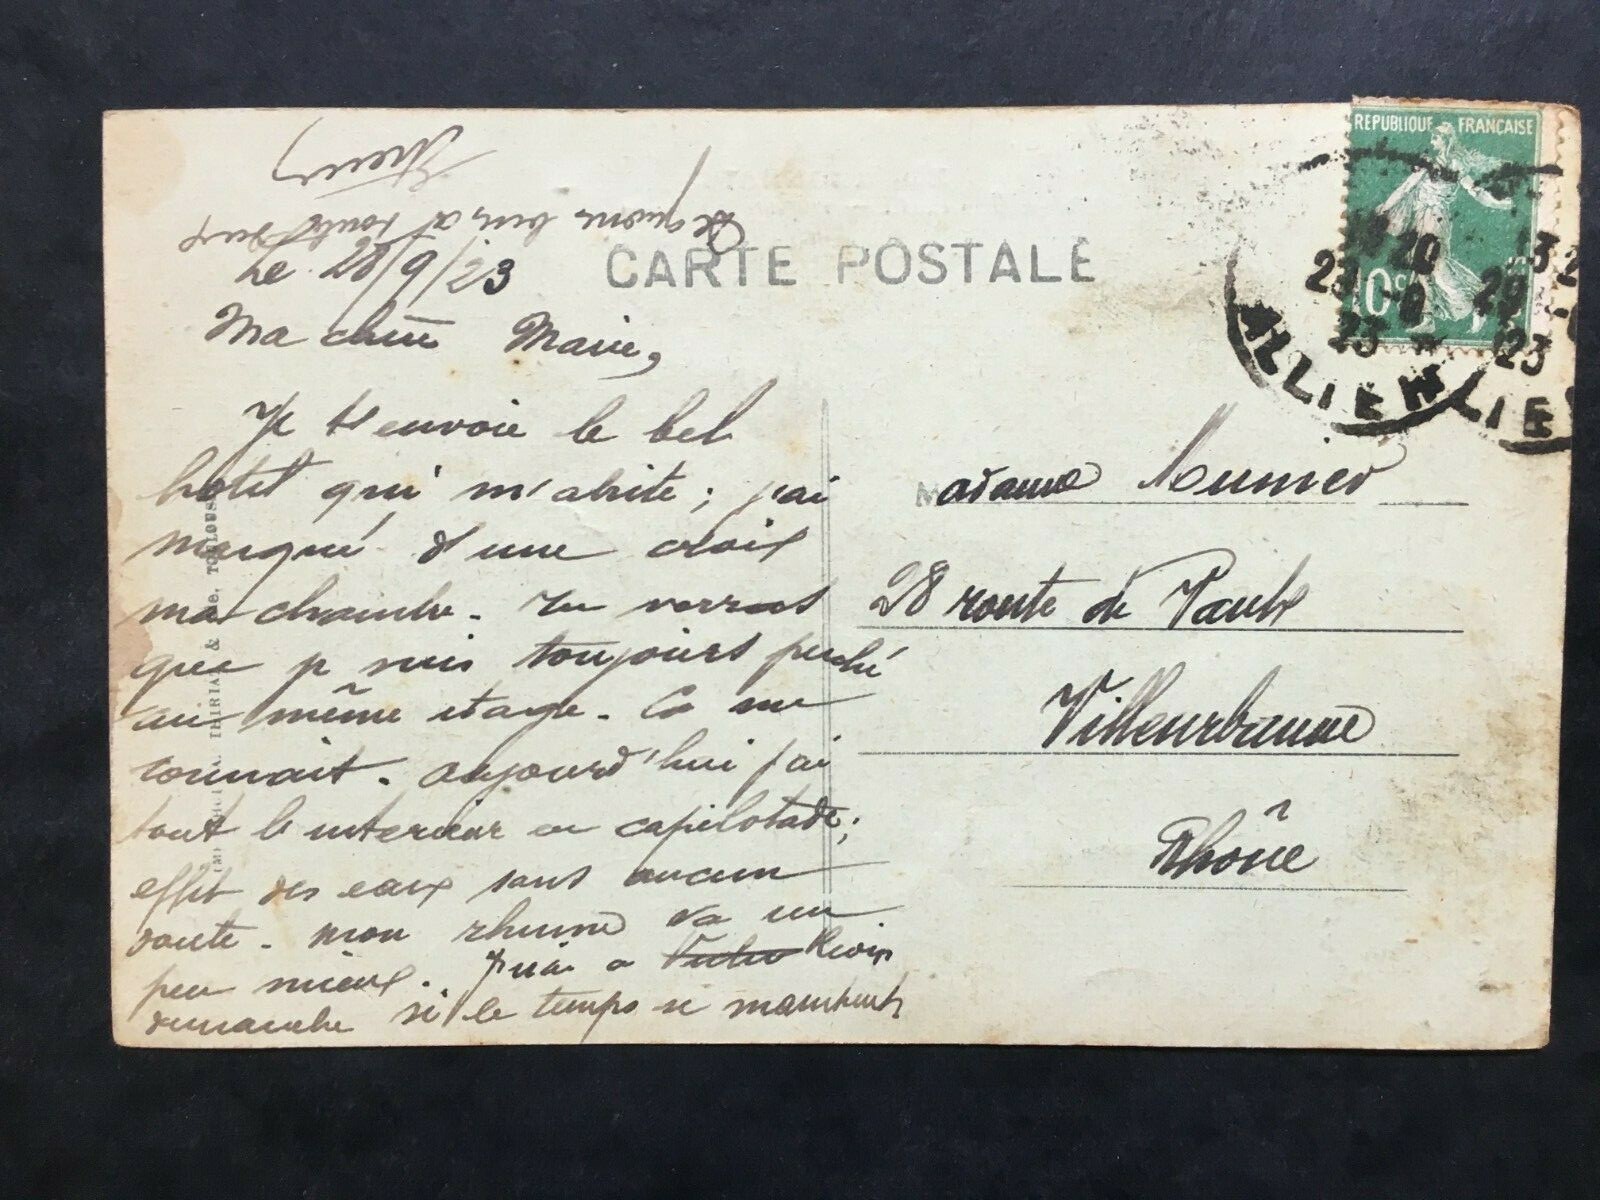 CARTE POSTALE
Le 28/9/23
Ma chère Marie,
Je t'envoie le bel
hotel qui m'abrite ; j'ai
marqué d'une croix
ma chambre. Tu verras
que je suis toujours perché
au même étage. Ca me
connait. aujourd'hui j'ai
tout l'interieur en capilotade ;
effet des eaux sans aucun
doute. mon rhume va un
peu mieux. J'irai a
dimanche si le temps se maintient
Je
bons et
REPUBLIQUE FRANÇAISE
10 c
20
23
23
13
29
23
ALLIER
ALLIER
Madame Munier
28 route de Vaulx
Villeurbanne
Rhône
& Cie, TOULOUSE